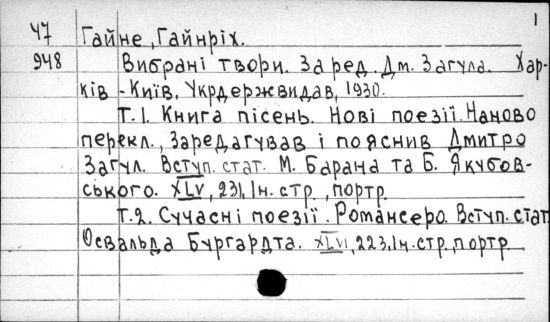 1
47 Гайне, Гайнріх.
948 Вибрані твори. За ред. Дм. Загула. Хар-
ків - Київ, Укрдержвидав, 1930.
Т.1. Книга пісень. Нові поезії. Наново
перекл., заредагував і пояснив Дмитро
Загул. Вступ. стат. М. Барана та Б. Якубов-
ського. XLV, 231, 1н. стр., портр.
Т.2. Сучасні поезії. Романсеро. Вступ. стат.
Освальда Бургардта. XLVI, 223, 1н. стр, портр